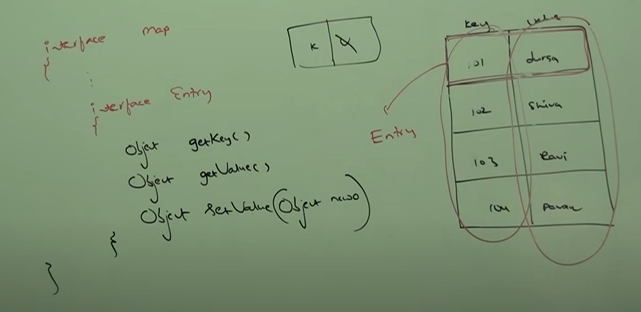 interface Map
{
:
interface Entry
{
Object getKey()
Object getValue()
Object setValue(Object newo)
}
}
K
Entry
Key Value
101 durga
102 Shiva
103 Ravi
104 Pavan